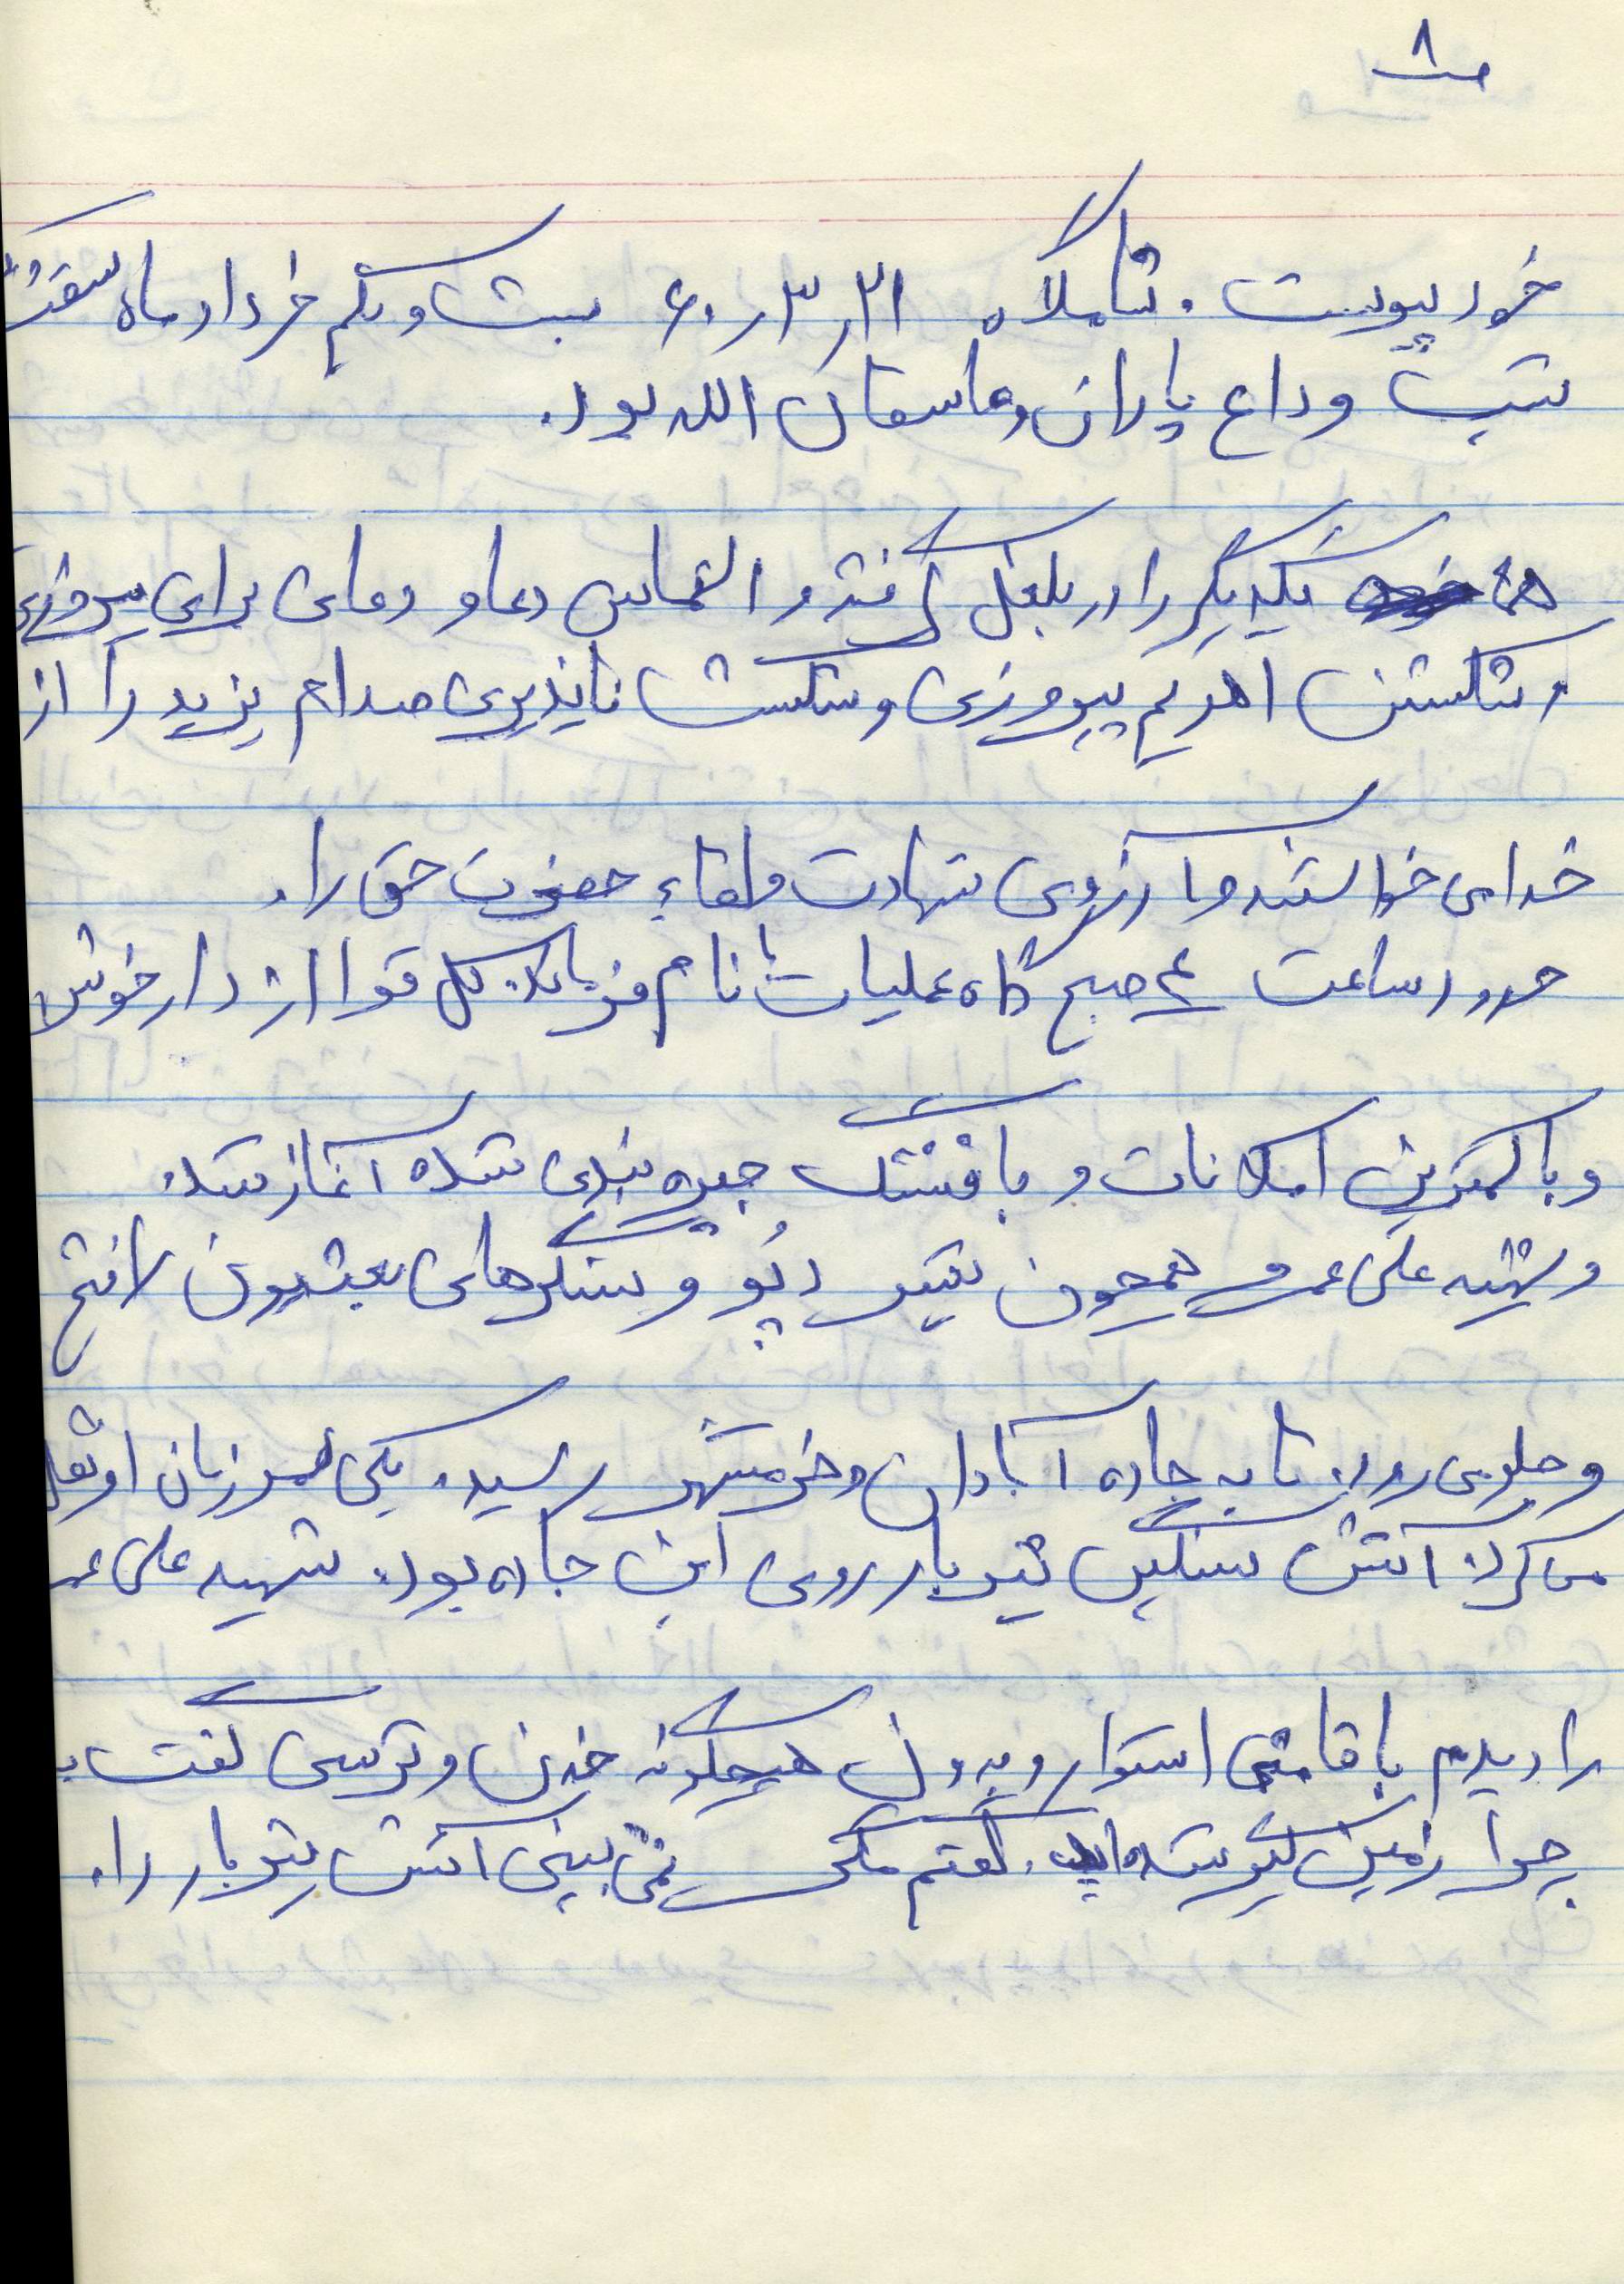 ص ۸
خود پیوست. شامگاه ۶۰٫۳٫۲۱ بیست و یکم خرداد ماه شصت
شب وداع یاران و عاشقان الله بود.
همه یکدیگر را در بغل گرفتند و التماس دعا و دعای برای پیروزی
و شکستن اهریم پیروزی و شکست ناپذیری صدام یزید را از
خدا می خواستند و آرزوی شهادت و لقاء حضرت حق را.
حدود ساعت ۴ صبح گاه عملیات با نام فرمانده کل قوا از دارخوین
و با کمترین امکانات و با فشنگ جیره بندی شده آغاز شد.
و شهید علی همچون تیر و سنگرهای بعثیون را فتح
و جلو می رود. تا به جاده آبادان و خرمشهر رسید. یکی همرزمان او نقل
می کرد. آتش سنگین تیر بار روی این جاده بود. شهید علی
را دیدم با قامتی استوار و بدون هیچگونه حزن و ترسی گفت
چرا زمین گیر شده اید. گفتم مگر نمی بینی آتش تیر بار را.